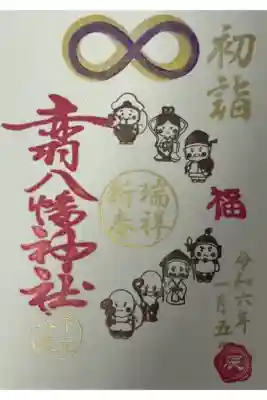 初詣
福
令和六年
一月五日
辰
瑞祥
新春
赤羽八幡神社